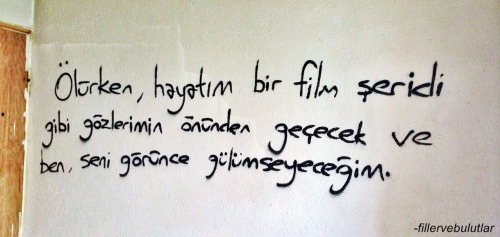 Ölürken, hayatım bir film şeridi
gibi gözlerimin önünden geçecek ve
ben, seni görünce gülümseyeceğim.
-fillervebulutlar